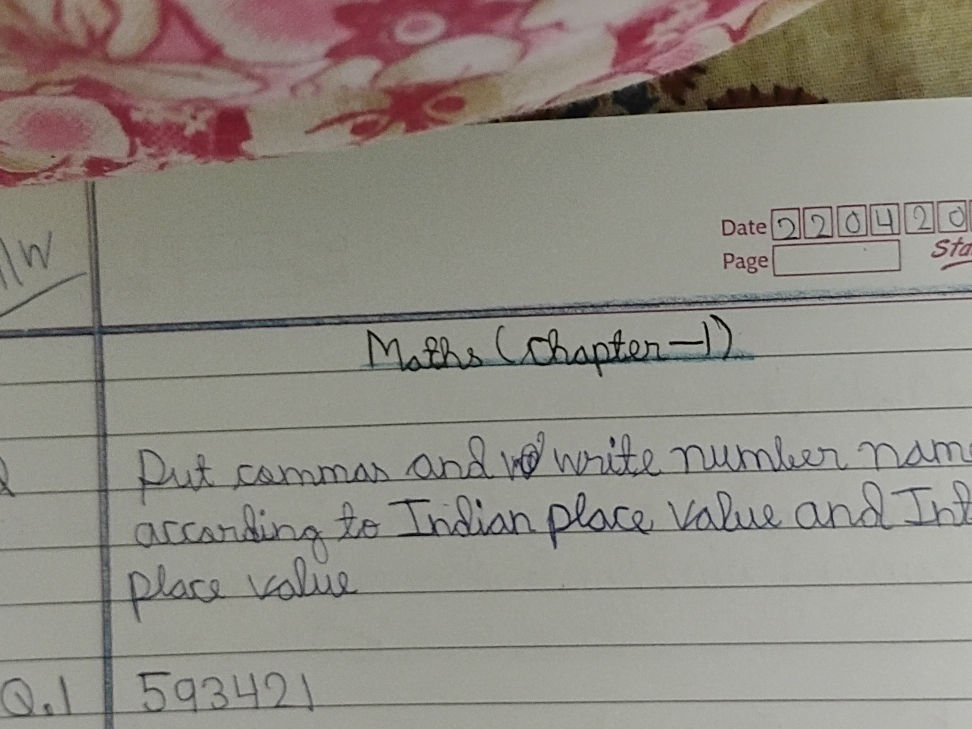 Date 220420
Page
Maths (Chapter-1)
Put commas and write number
according to Indian place value and
place value
Q.1 593421